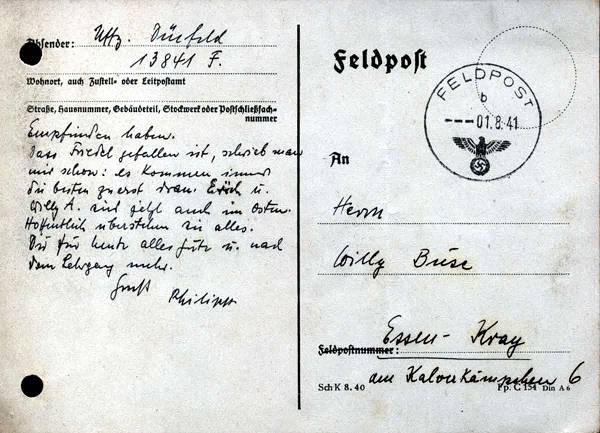 Absender: Uffz. Dürfeld
13841 F.
Wohnort, auch Zustell- oder Leitpostamt
Straße, Hausnummer, Gebäudeteil, Stockwerk oder Postschließfach-
nummer
Empfinden haben.
Dass Friedel gefallen ist, schrieb man
mir schon: es kommen immer
die besten zuerst dran. Erich u.
Willy A. sind jetzt auch im Osten.
Hoffentlich überstehen sie alles.
Dir für heute alles Gute u. nach
dem Lehrgang mehr.
Gruß
Philipp
Feldpost
FELDPOST
b
---01.8.41
An
Herrn
Willy Buse
Essen-Kray
Feldpostnummer:
am Kalverkämpchen 6
Sch K 8. 40
Fp. C 154 Din A 6